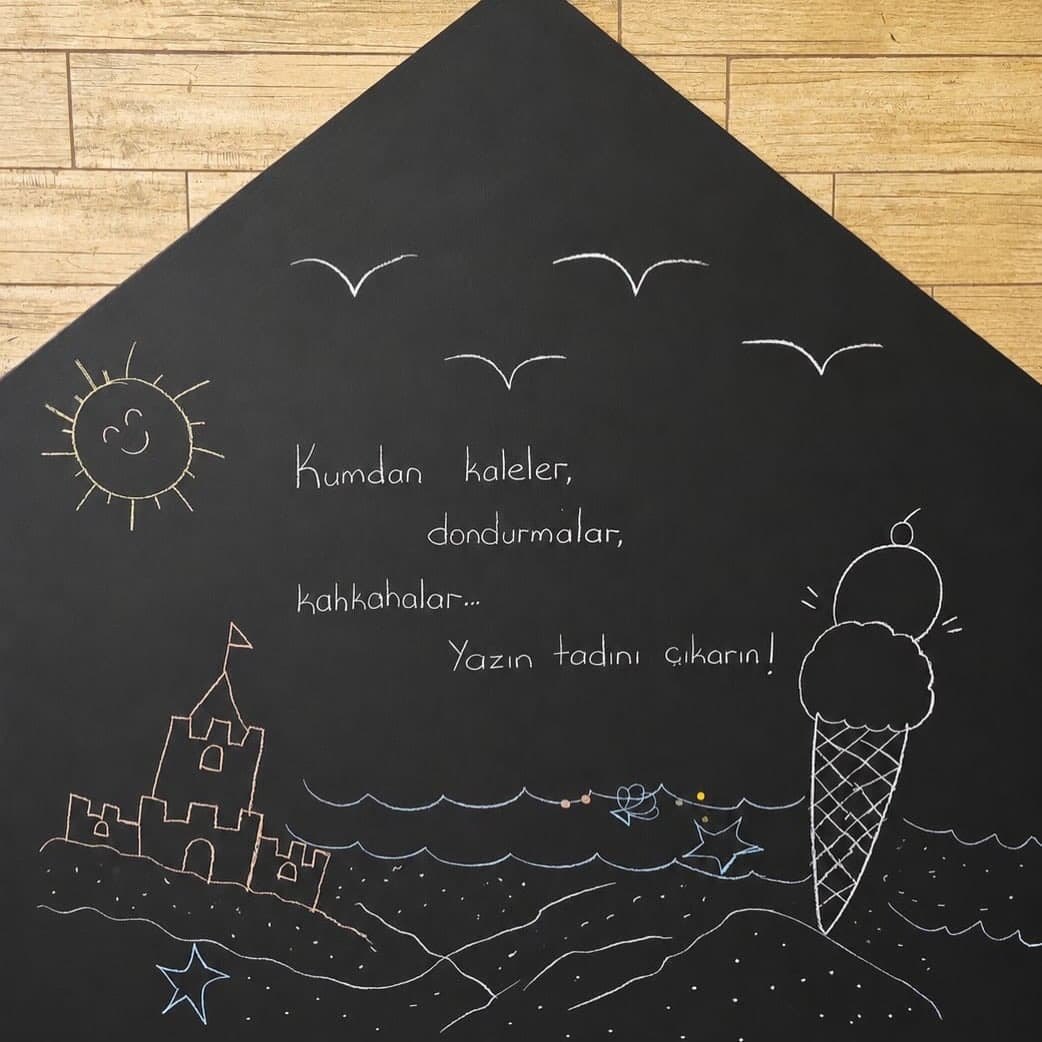 Kumdan kaleler,
dondurmalar,
kahkahalar...
Yazın tadını çıkarın!